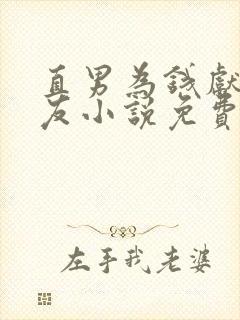 直男為錢獻
友小說免費
左手我老婆